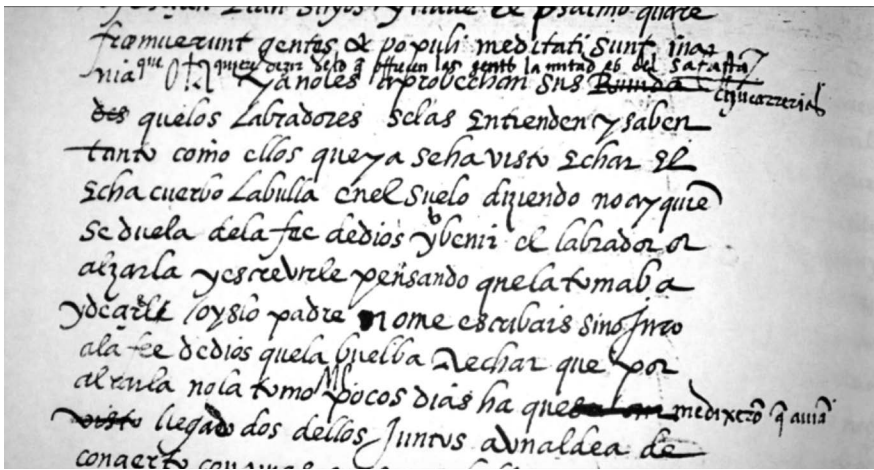 psalmo quare
fremuerunt gentes & populi meditati sunt ina
nia que quiere dezir delo q offrecen las gentes la mitad es del
ya noles aprobechan sus
des quelos Labradores selas Entienden y saben
tanto como ellos que ya seha visto Echar El
Echa cuerbo Labulla enel suelo diziendo no ay quiē
se duela dela fee dedios y benir el labrador
alzarla y escrevirle pensando quela tomaba
y dezirle oyslo padre Nome escribais sino Juro
ala fee dedios quela buelba Aechar que por
alzarla nola tomo pocos dias ha que medixerō q auiā
visto llegado dos dellos Juntos aunaldea de
concerto